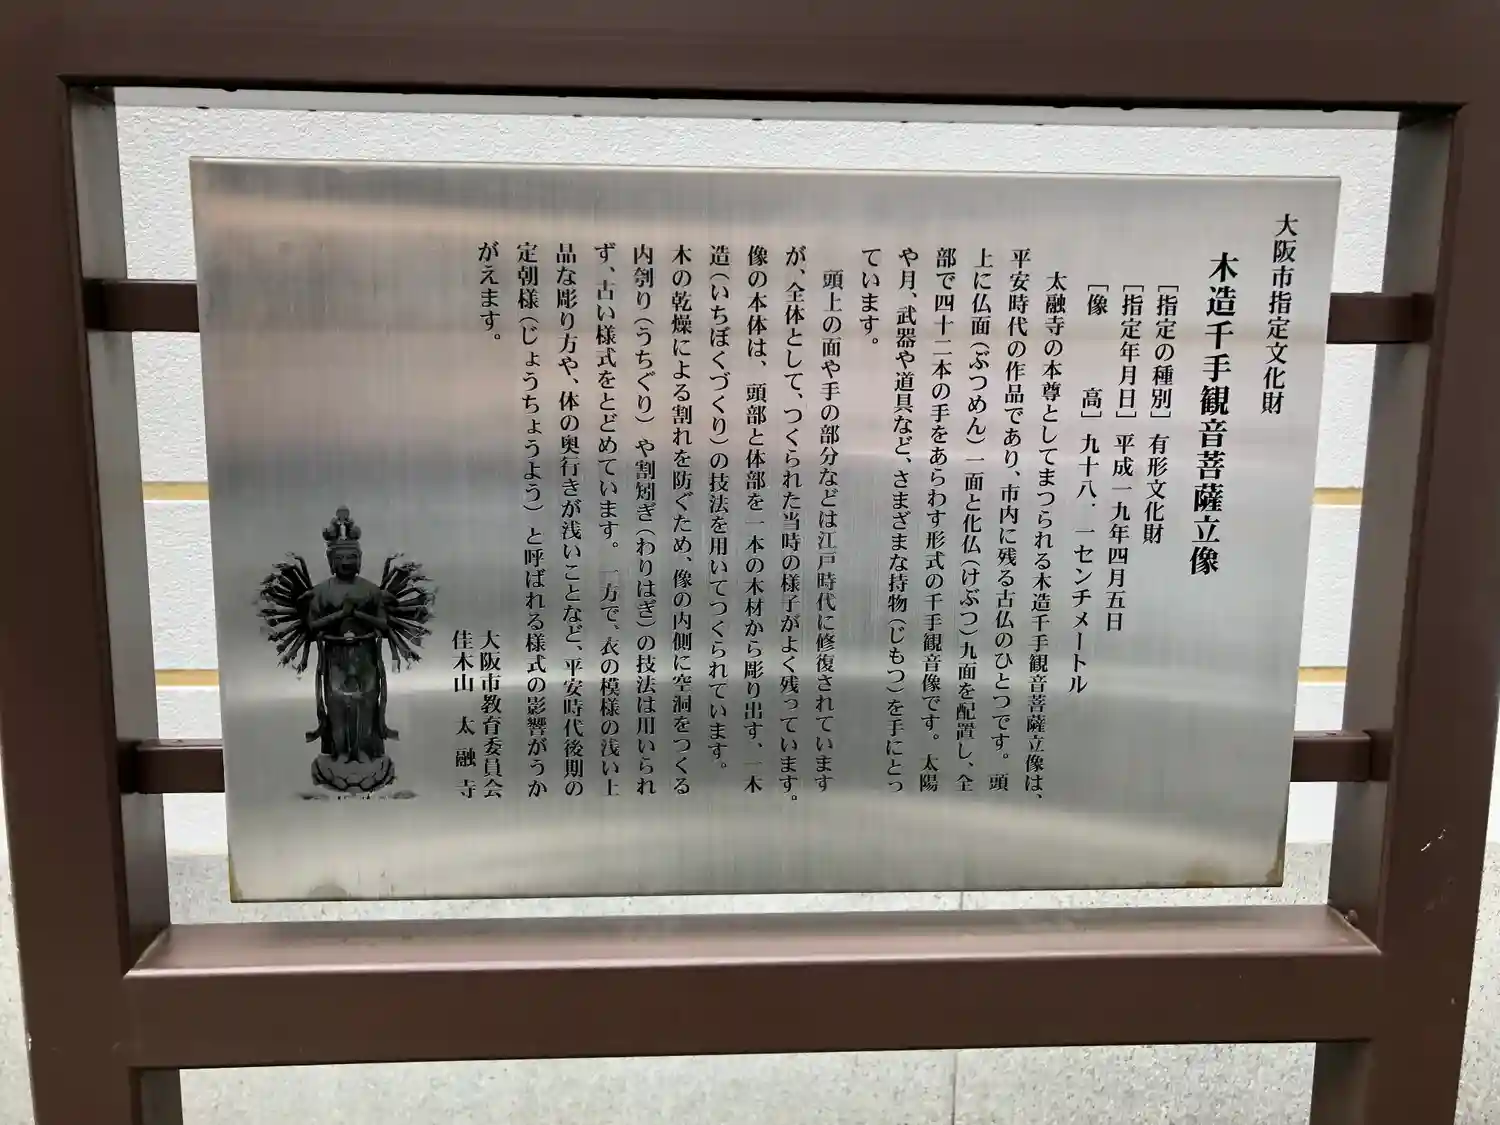 大阪市指定文化財
木造千手観音菩薩立像
［指定の種別］有形文化財
［指定年月日］平成一九年四月五日
［像　　高］九十八．一センチメートル
太融寺の本尊としてまつられる木造千手観音菩薩立像は、
平安時代の作品であり、市内に残る古仏のひとつです。頭
上に仏面（ぶつめん）一面と化仏（けぶつ）九面を配置し、全
部で四十二本の手をあらわす形式の千手観音像です。太陽
や月、武器や道具など、さまざまな持物（じもつ）を手にとっ
ています。
頭上の面や手の部分などは江戸時代に修復されています
が、全体として、つくられた当時の様子がよく残っています。
像の本体は、頭部と体部を一本の木材から彫り出す、一木
造（いちぼくづくり）の技法を用いてつくられています。
木の乾燥による割れを防ぐため、像の内側に空洞をつくる
内刳り（うちぐり）や割矧ぎ（わりはぎ）の技法は用いられ
ず、古い様式をとどめています。一方で、衣の模様の浅い上
品な彫り方や、体の奥行きが浅いことなど、平安時代後期の
定朝様（じょうちょうよう）と呼ばれる様式の影響がうか
がえます。
大阪市教育委員会
佳木山　太融寺